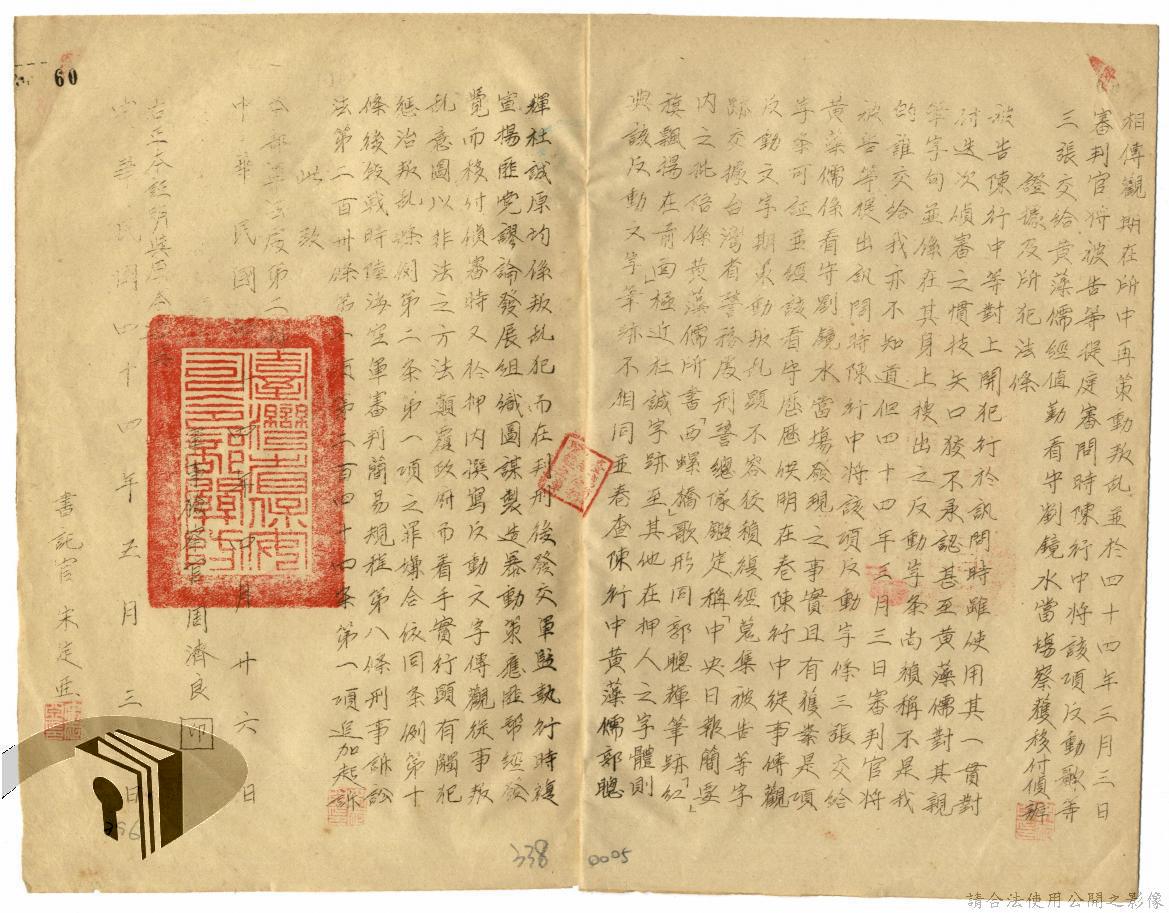 相傳觀期在所中再策動叛乱並於四十四年三月三日
審判官將被告等提庭審問時陳行中將該項反動歌等
三張交給黃藻儒經值勤看守劉鏡水當塲察獲移付偵辦
證據及所犯法條
被告陳行中等對上開犯行於訊問時雖使用其一貫對
付迭次偵審之慣技矢口狡不承認甚至黃藻儒對其親
筆字句並係在其身上搜出之反動字条尚稹稱不是我
的誰交給我亦不知道但四十四年三月三日審判官將
被告等提出訊問時陳行中將該項反動字條三張交給
黃藻儒係看守劉鏡水當塲發現之事實且有獲案是項
字条可証並經該看守歷歷供明在卷陳行中從事傳觀
反動文字期東動叛乱顕不容狡稹復經蒐集被告等字
跡交據台灣省警務處刑警總隊鑑定稱「中央日報簡要
內之批俻係黃藻儒所書「西螺橋」歌形同郭聰輝筆跡「紅
旗飄揚在前面」極近社誠字跡至其他在押人之字體則
與該反動文字筆跡不相同並卷查陳行中黃藻儒郭聰
輝社誠原均係叛乱犯而在判刑後發交軍監執行時複
宣揚匪党謬論發展組織圖謀製造暴動策應匪幫經發
覺而移付偵審時又於押內撰寫反動文字傳觀從事叛
乱意圖以非法之方法顛覆政府而着手實行顕有觸犯
懲治叛乱條例第二条第一項之罪嫌合依同条例第十
條後段戰時陸海空軍審判簡易規程第八條刑事訴訟
法第二百卅條第一項第二百四十四条第一項追加起訴
此致
本部軍法處第二
中華民國 年 月廿六日
軍事檢察官周濟良 印
右正本証明與原本
中華民國四十四年五月三日
書記官宋定
60
338
0005
請合法使用公開之影像